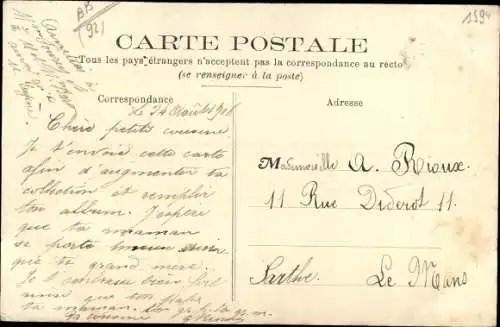 BB
921
1594
CARTE POSTALE
Tous les pays étrangers n'acceptent pas la correspondance au recto
(se renseigner à la poste)
Correspondance
Adresse
Le 24 Août 1906
Chère petite cousine
Je t'envoie cette carte
afin d'augmenter ta
collection et remplir
ton album. J'espère
que ta maman
se porte bien ainsi
que ta grand mère.
Je t'embrasse bien fort
ainsi que ton papa
ta maman
ta cousine
Mademoiselle A. Rioux.
11 Rue Diderot 11.
Sarthe. Le Mans